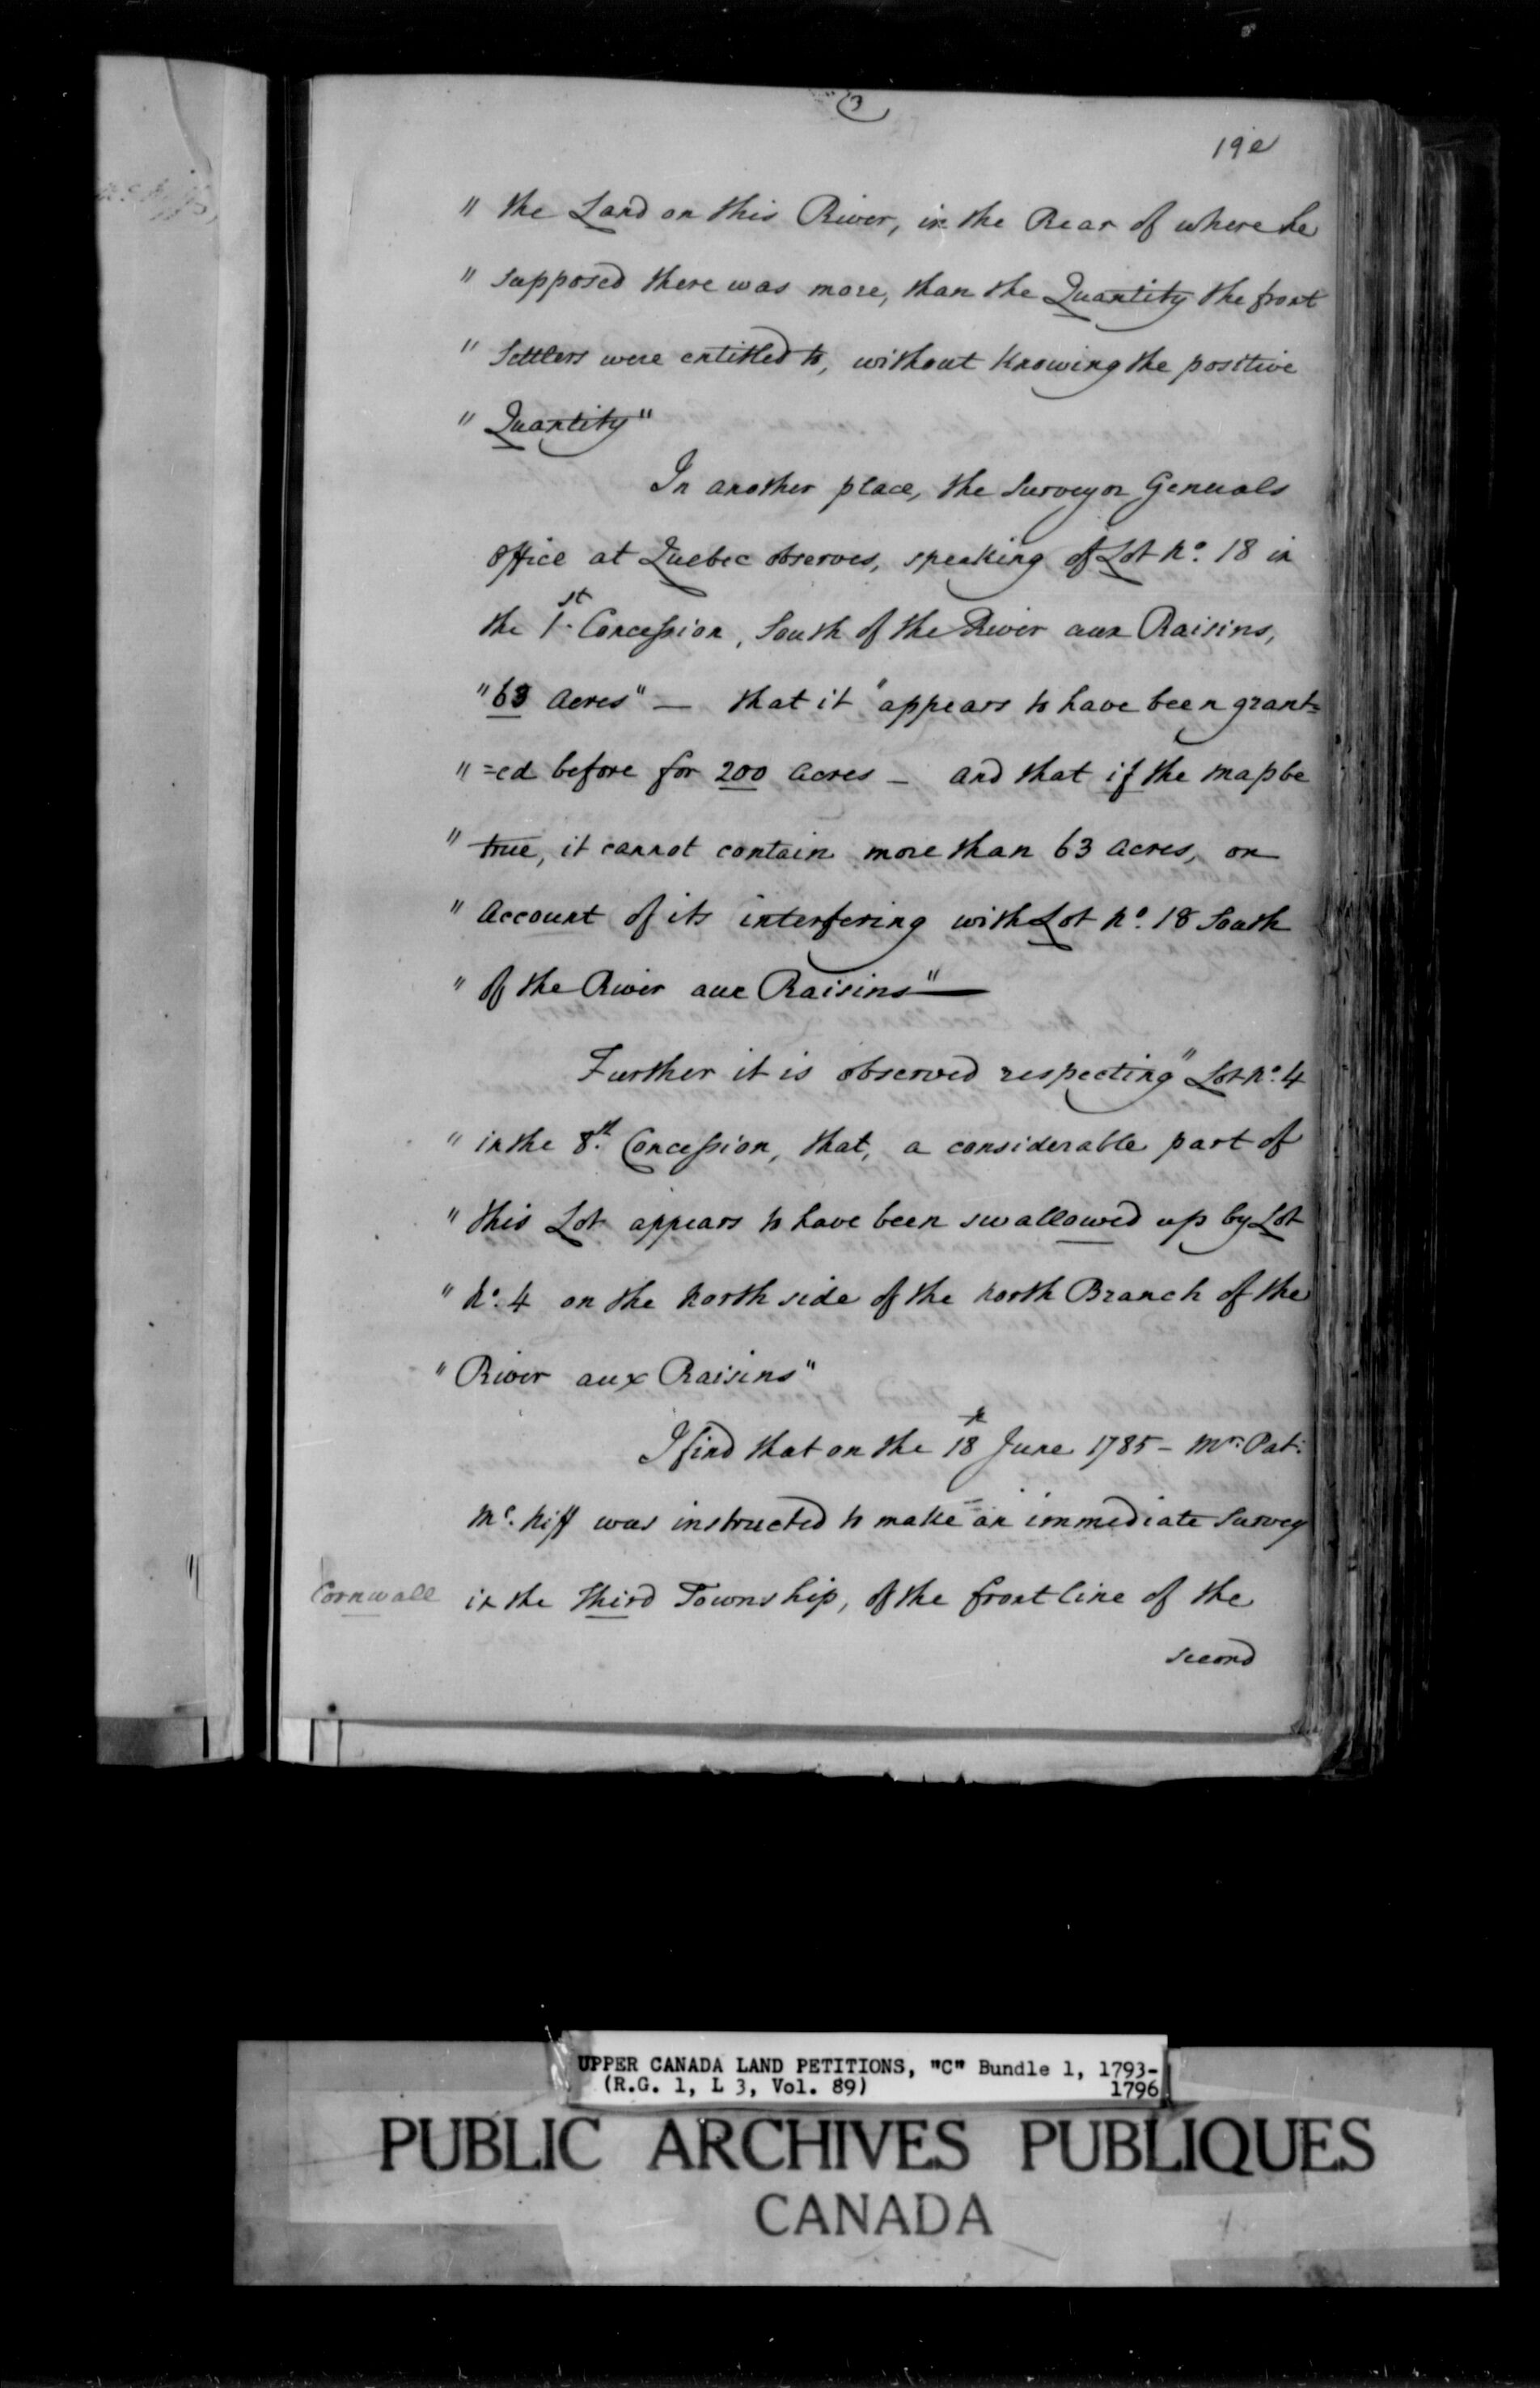 3
19e
" the Land on this River, in the Rear of where he
" supposed there was more, than the Quantity the front
" Settlers were entitled to, without knowing the positive
" Quantity"
In another place, the Surveyor Generals
Office at Quebec observes, speaking of Lot No. 18 in
the 1st Concession, South of the River aux Raisins,
"63 Acres" — that it "appears to have been grant=
" =ed before for 200 Acres — and that if the map be
" true, it cannot contain more than 63 Acres, on
" Account of its interfering with Lot No. 18 South
" of the River aux Raisins" —
Further it is observed respecting "Lot No. 4
" in the 8th Concession, that, a considerable part of
" this Lot appears to have been swallowed up by Lot
" No. 4 on the North side of the North Branch of the
" River aux Raisins"
I find that on the 18th June 1785 — Mr. Pat:
Mc. Niff was instructed to make an immediate Survey
Cornwall in the third Township, of the front line of the
second
UPPER CANADA LAND PETITIONS, "C" Bundle 1, 1793-
(R.G. 1, L 3, Vol. 89) 1796
PUBLIC ARCHIVES PUBLIQUES
CANADA